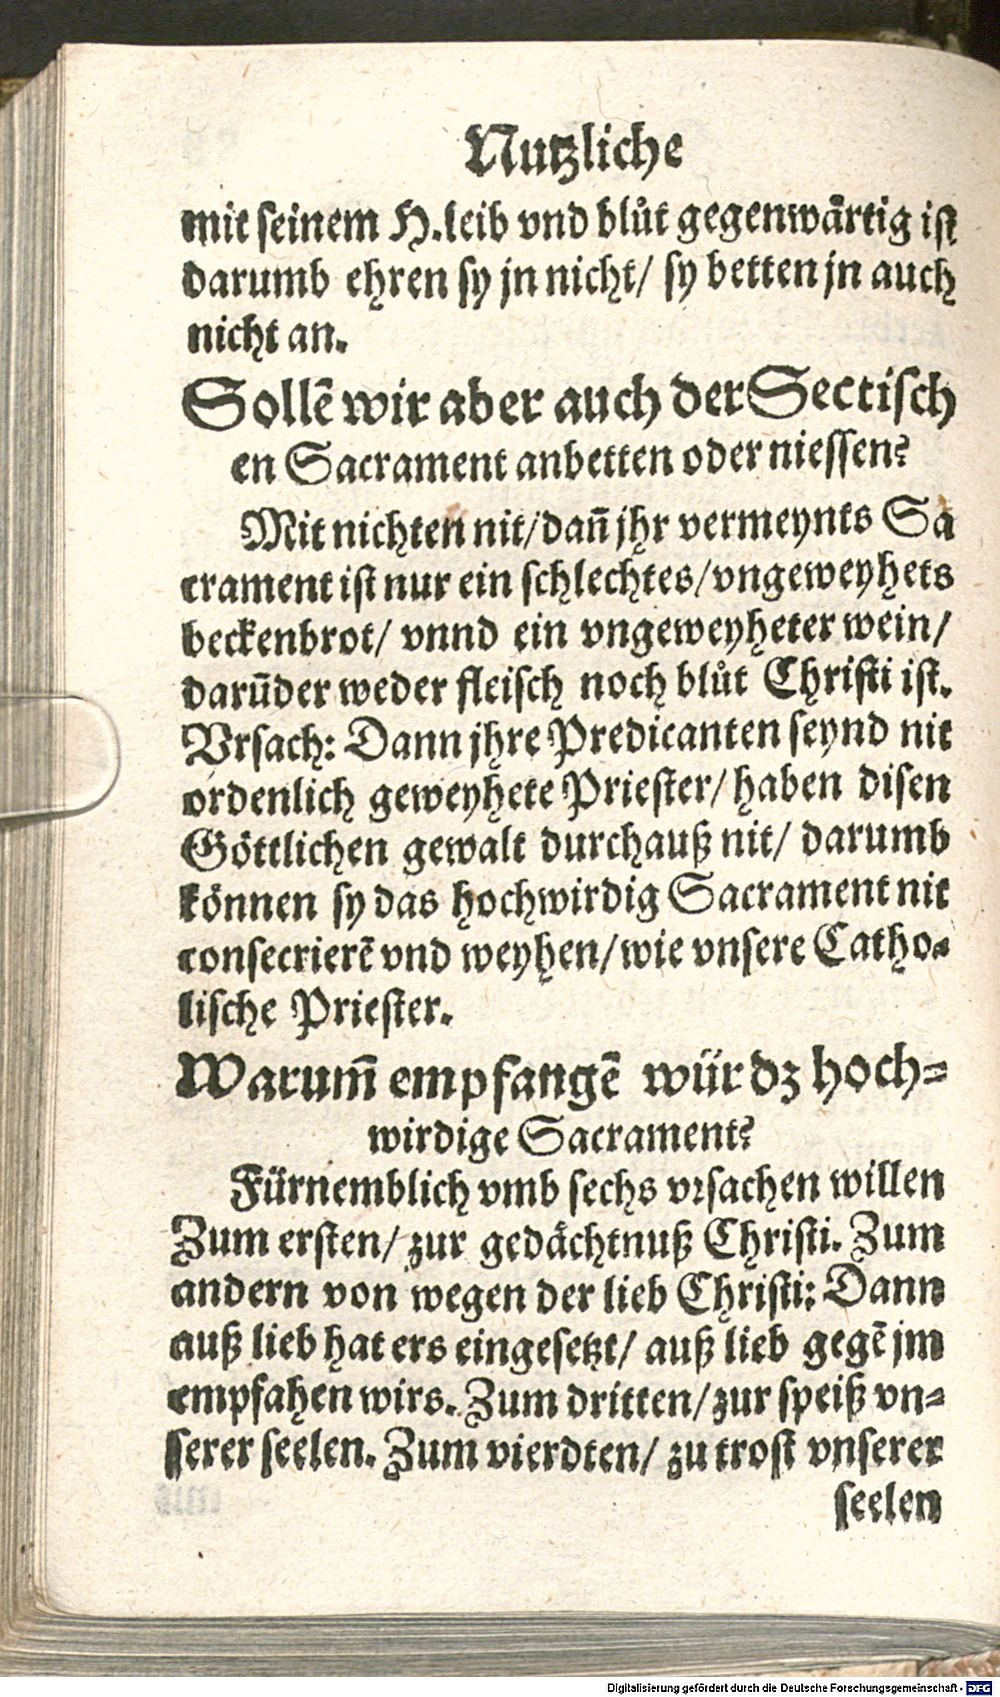 Nutzliche
mit seinem H. leib vnd blůt gegenwårtig ist
darumb ehren sy jn nicht/ sy betten jn auch
nicht an.
Sollē wir aber auch der Sectisch
en Sacrament anbetten oder niessen?
Mit nichten nit/ dañ jhr vermeynts Sa
crament ist nur ein schlechtes/ vngeweyhets
beckenbrot/ vnnd ein vngeweyheter wein/
darūder weder fleisch noch blůt Christi ist.
Vrsach: Dann jhre Predicanten seynd nit
ordenlich geweyhete Priester/ haben disen
Göttlichen gewalt durchauß nit/ darumb
können sy das hochwirdig Sacrament nit
consecrierē vnd weyhen/ wie vnsere Catho-
lische Priester.
Warum̄ empfangē wür dz hoch-
wirdige Sacrament?
Fürnemblich vmb sechs vrsachen willen
Zum ersten/ zur gedåchtnuß Christi. Zum
andern von wegen der lieb Christi: Dann
auß lieb hat ers eingesetzt/ auß lieb gegē jm
empfahen wirs. Zum dritten/ zur speiß vn-
serer seelen. Zum vierdten/ zu trost vnserer
seelen
Digitalisierung gefördert durch die Deutsche Forschungsgemeinschaft - DFG